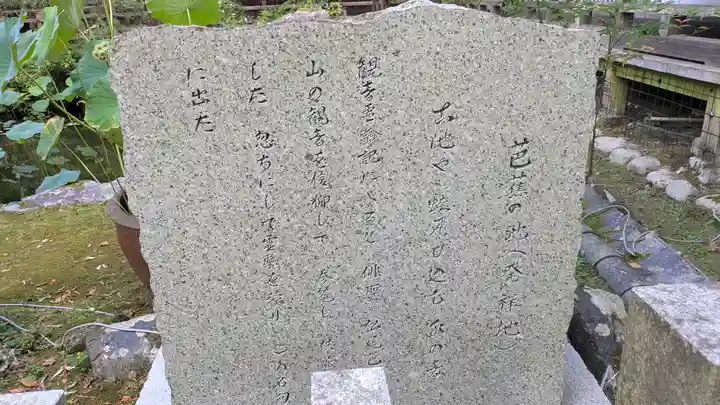 芭蕉の池(発祥地)
古池や 蛙飛び込む 水の音
観音霊験記によると 俳聖 松尾芭
山の観音を信仰して 参
した 忽ちにして霊 を い この名句
に出た